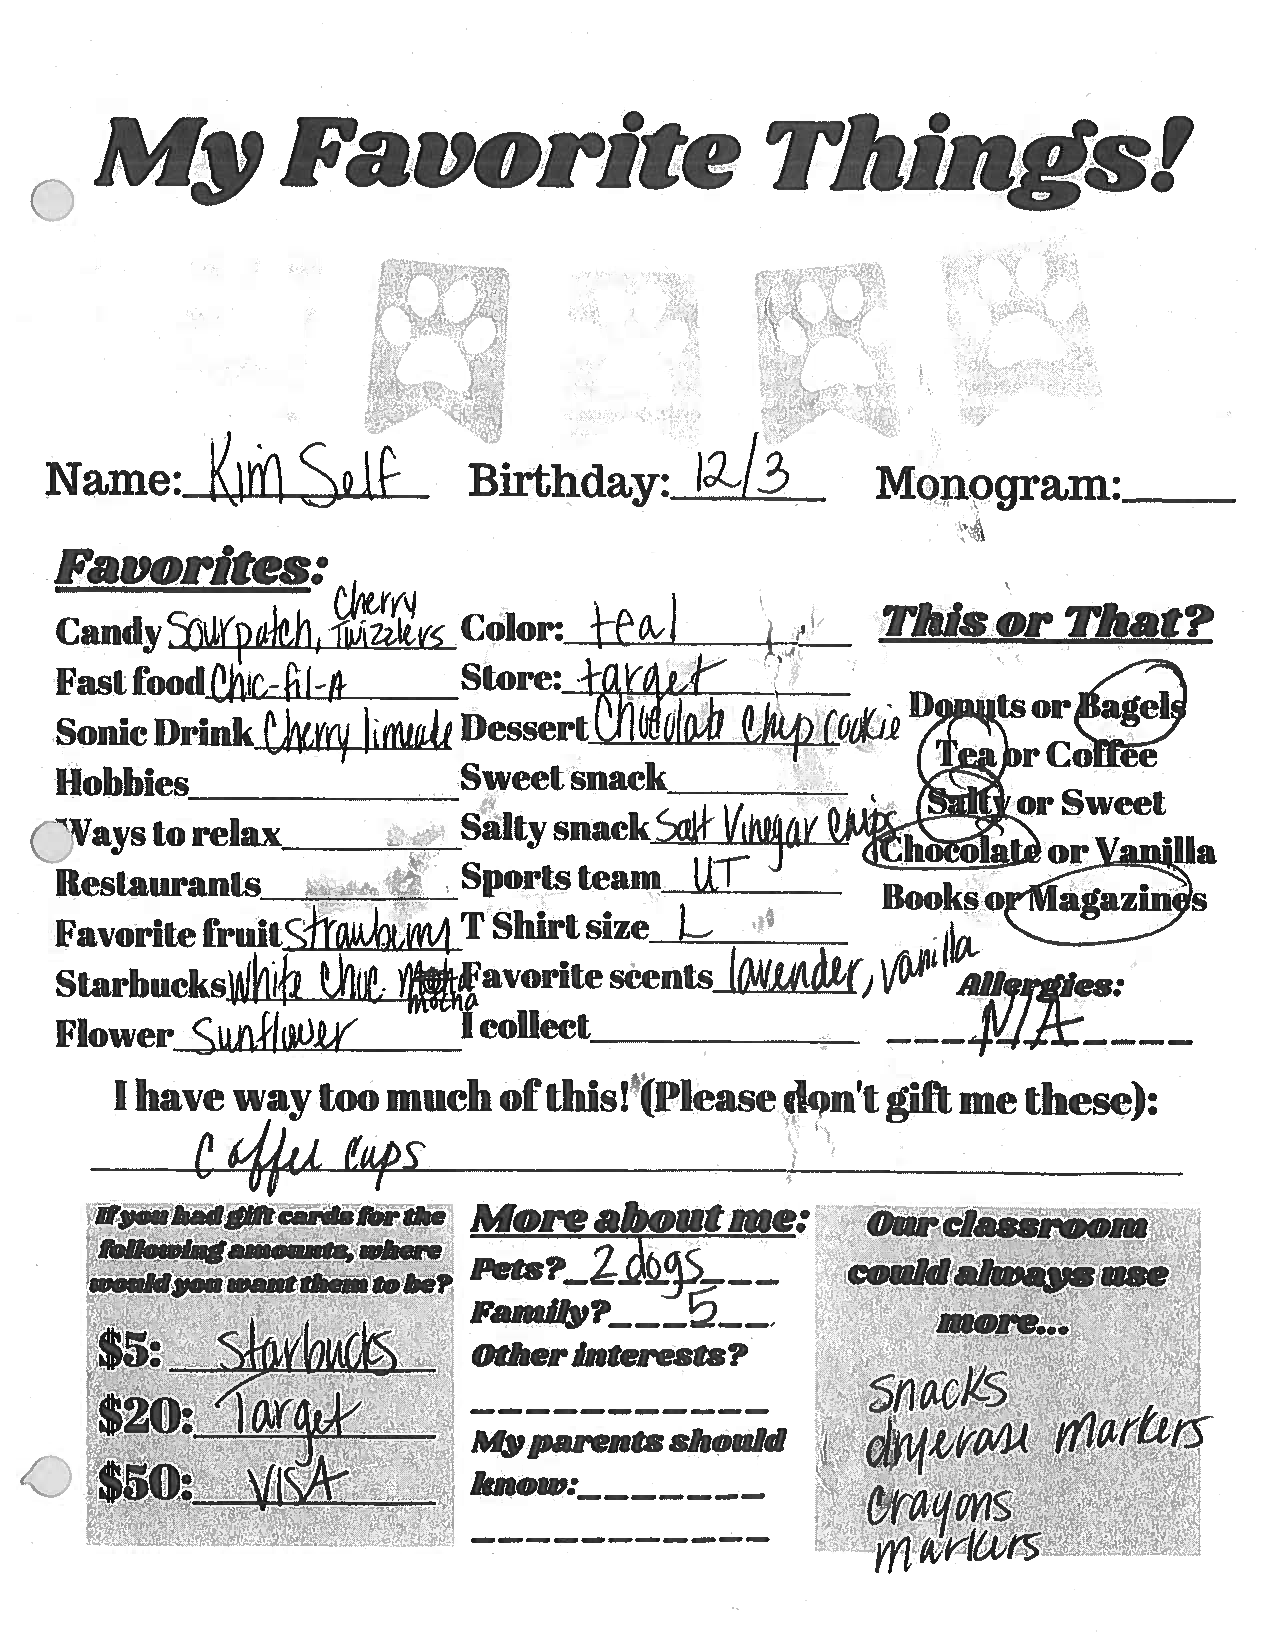 My Favorite Things!
Name: Kim Self Birthday: 12/3 Monogram:
Favorites:
Candy Sourpatch, Cherry Twizzlers
Fast food Chic-fil-A
Sonic Drink Cherry limeade
Hobbies
Ways to relax
Restaurants
Favorite fruit Strawberry
Starbucks White Choc. mocha
Flower Sunflower
Color: teal
Store: target
Dessert Chocolate Chip cookie
Sweet snack
Salty snack Salt Vinegar Chips
Sports team UT
T Shirt size L
Favorite scents lavender, vanilla
I collect
This or That?
Donuts or Bagels
Tea or Coffee
Salty or Sweet
Chocolate or Vanilla
Books or Magazines
Allergies:
N/A
I have way too much of this! (Please don't gift me these):
Coffee cups
If you had gift cards for the
following amounts, where
would you want them to be?
$5: Starbucks
$20: Target
$50: VISA
More about me:
Pets? 2 dogs
Family? 5
Other interests?
My parents should
know:
Our classroom
could always use
more...
snacks
dry erase markers
crayons
markers